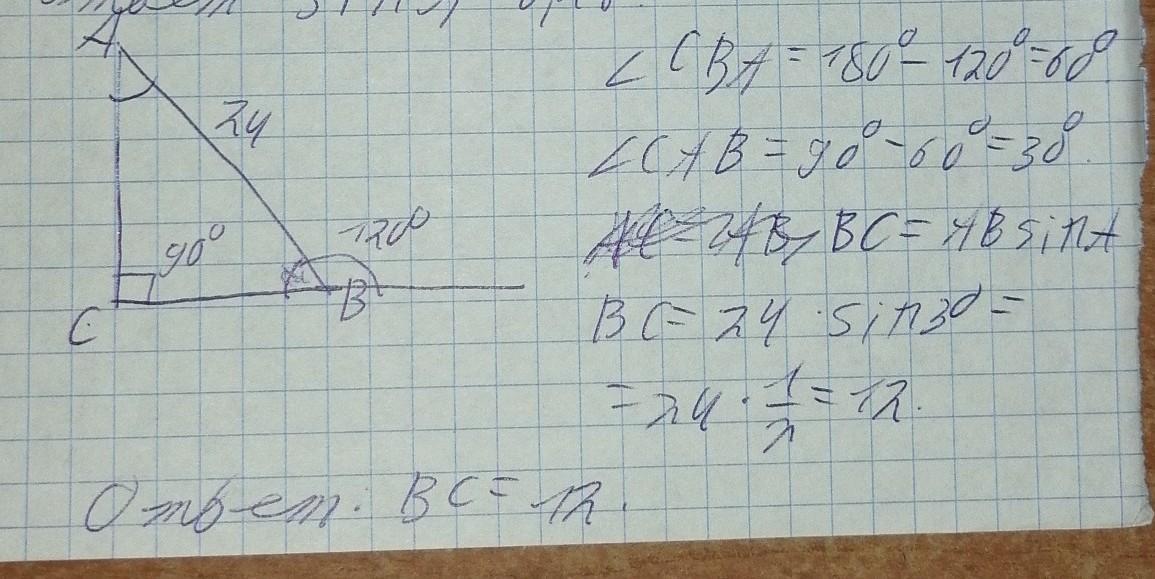 A
24
90°
120°
C
B
∠CBA = 180° - 120° = 60°
∠CAB = 90° - 60° = 30°.
BC = AB sin A
BC = 24 · sin 30 =
= 24 · 1/2 = 12.
Ответ: BC = 12.